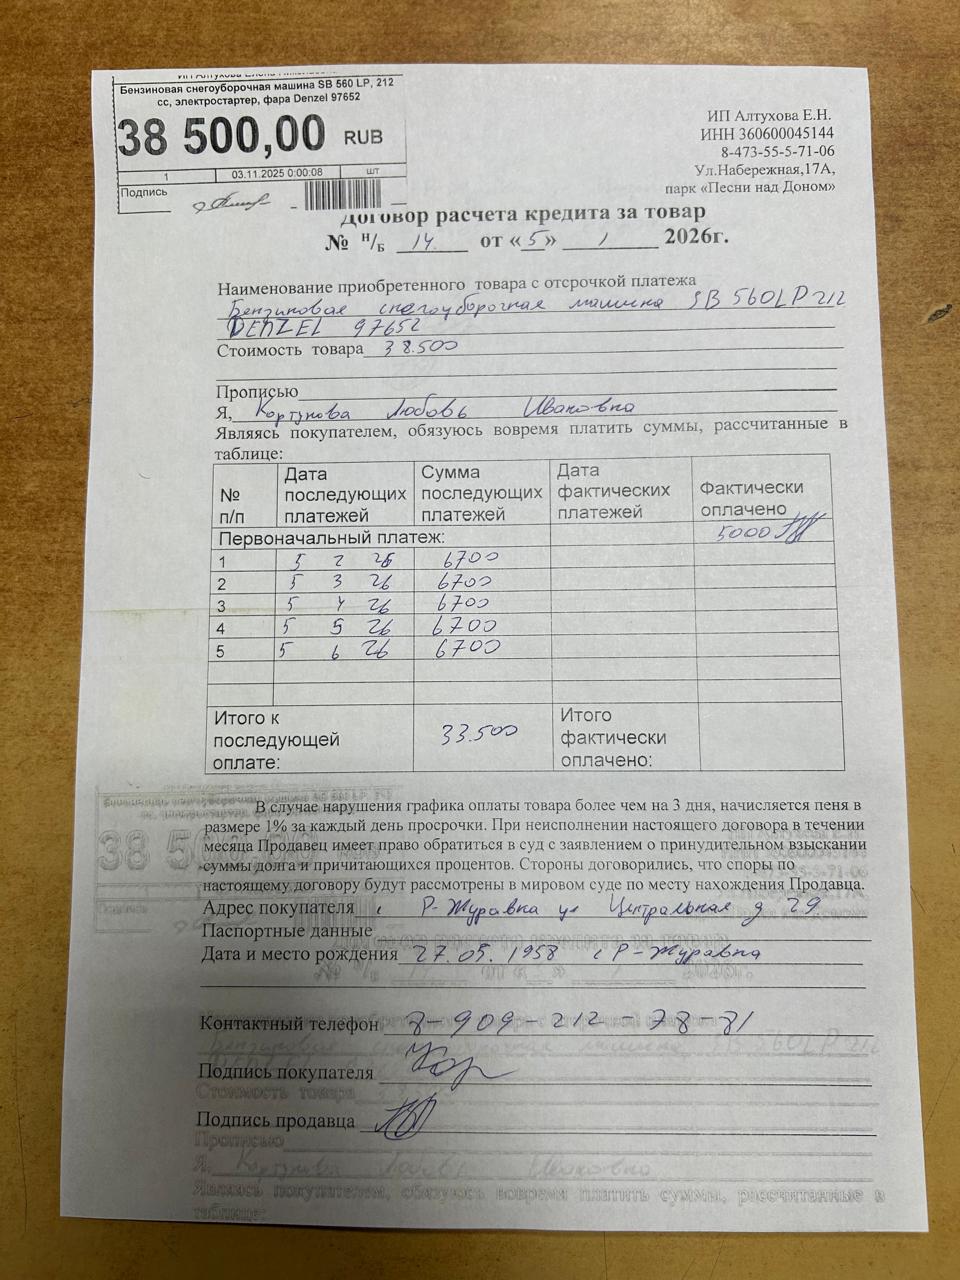 ИП Алтухова Елена Николаевна
Бензиновая снегоуборочная машина SB 560 LP, 212
сс, электростартер, фара Denzel 97652
38 500,00 RUB
1 03.11.2025 0:00:08 шт
Подпись
ИП Алтухова Е.Н.
ИНН 360600045144
8-473-55-5-71-06
Ул.Набережная,17А,
парк «Песни над Доном»
Договор расчета кредита за товар
№ н/Б 14 от «5» 1 2026г.
Наименование приобретенного товара с отсрочкой платежа
Бензиновая снегоуборочная машина SB 560LP 212
DENZEL 97652
Стоимость товара 38.500
Прописью
Я, Кортунова Любовь Ивановна
Являясь покупателем, обязуюсь вовремя платить суммы, рассчитанные в
таблице:
№ п/п Дата последующих платежей Сумма последующих платежей Дата фактических платежей Фактически оплачено
Первоначальный платеж: 5000
1 5 2 26 6700
2 5 3 26 6700
3 5 4 26 6700
4 5 5 26 6700
5 5 6 26 6700
Итого к последующей оплате: 33.500 Итого фактически оплачено:
В случае нарушения графика оплаты товара более чем на 3 дня, начисляется пеня в
размере 1% за каждый день просрочки. При неисполнении настоящего договора в течении
месяца Продавец имеет право обратиться в суд с заявлением о принудительном взыскании
суммы долга и причитающихся процентов. Стороны договорились, что споры по
настоящему договору будут рассмотрены в мировом суде по месту нахождения Продавца.
Адрес покупателя с Р-Журавка ул Центральная д 29
Паспортные данные
Дата и место рождения 27.05.1958 с Р-Журавка
Контактный телефон 8-909-212-78-81
Подпись покупателя Кор
Подпись продавца